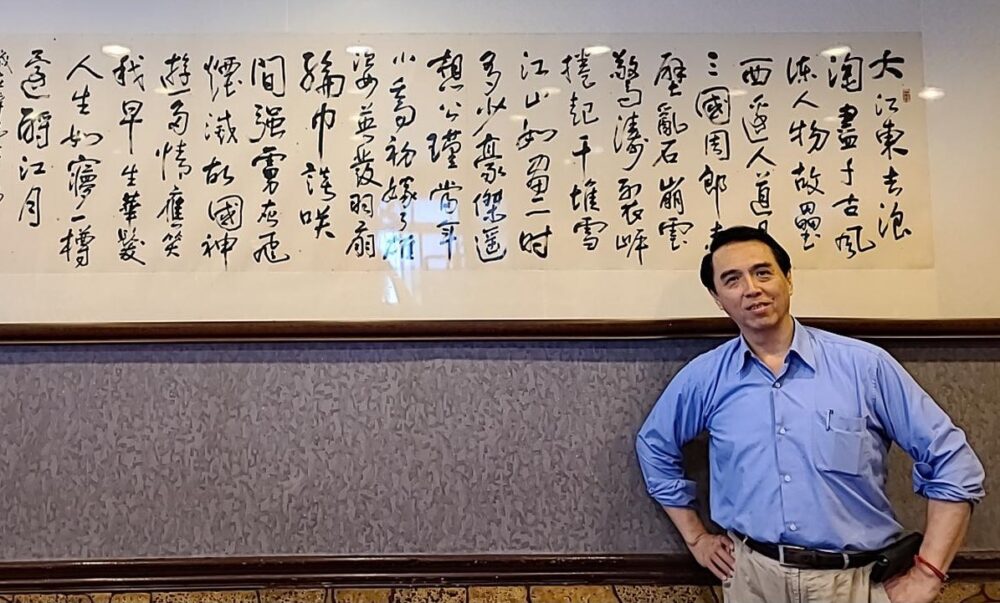 大江東去浪
淘盡千古風
流人物故壘
西邊人道是
三國周郎赤
壁亂石崩雲
驚濤裂岸
捲起千堆雪
江山如畫一時
多少豪傑遙
想公瑾當年
小喬初嫁了雄
姿英發羽扇
綸巾談咲
間强虜灰飛
煙滅故國神
遊多情應笑
我早生華髮
人生如夢一樽
還酹江月